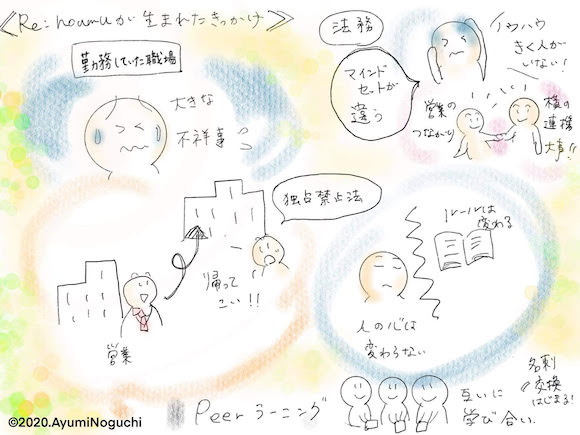 ≪Re:houmuが生まれたきっかけ≫
勤務していた職場
大きな
不祥事
法務
マインド
セットが
違う
ノウハウ
きく人が
いない!
営業の
つながり
横の
連携
大事!!
独占禁止法
帰って
こい!!
営業
ルールは
変わる
人の心は
変わらない
Peerラーニング
互いに
学び合い
名刺
交換
はじまる!
©2020.AyumiNoguchi